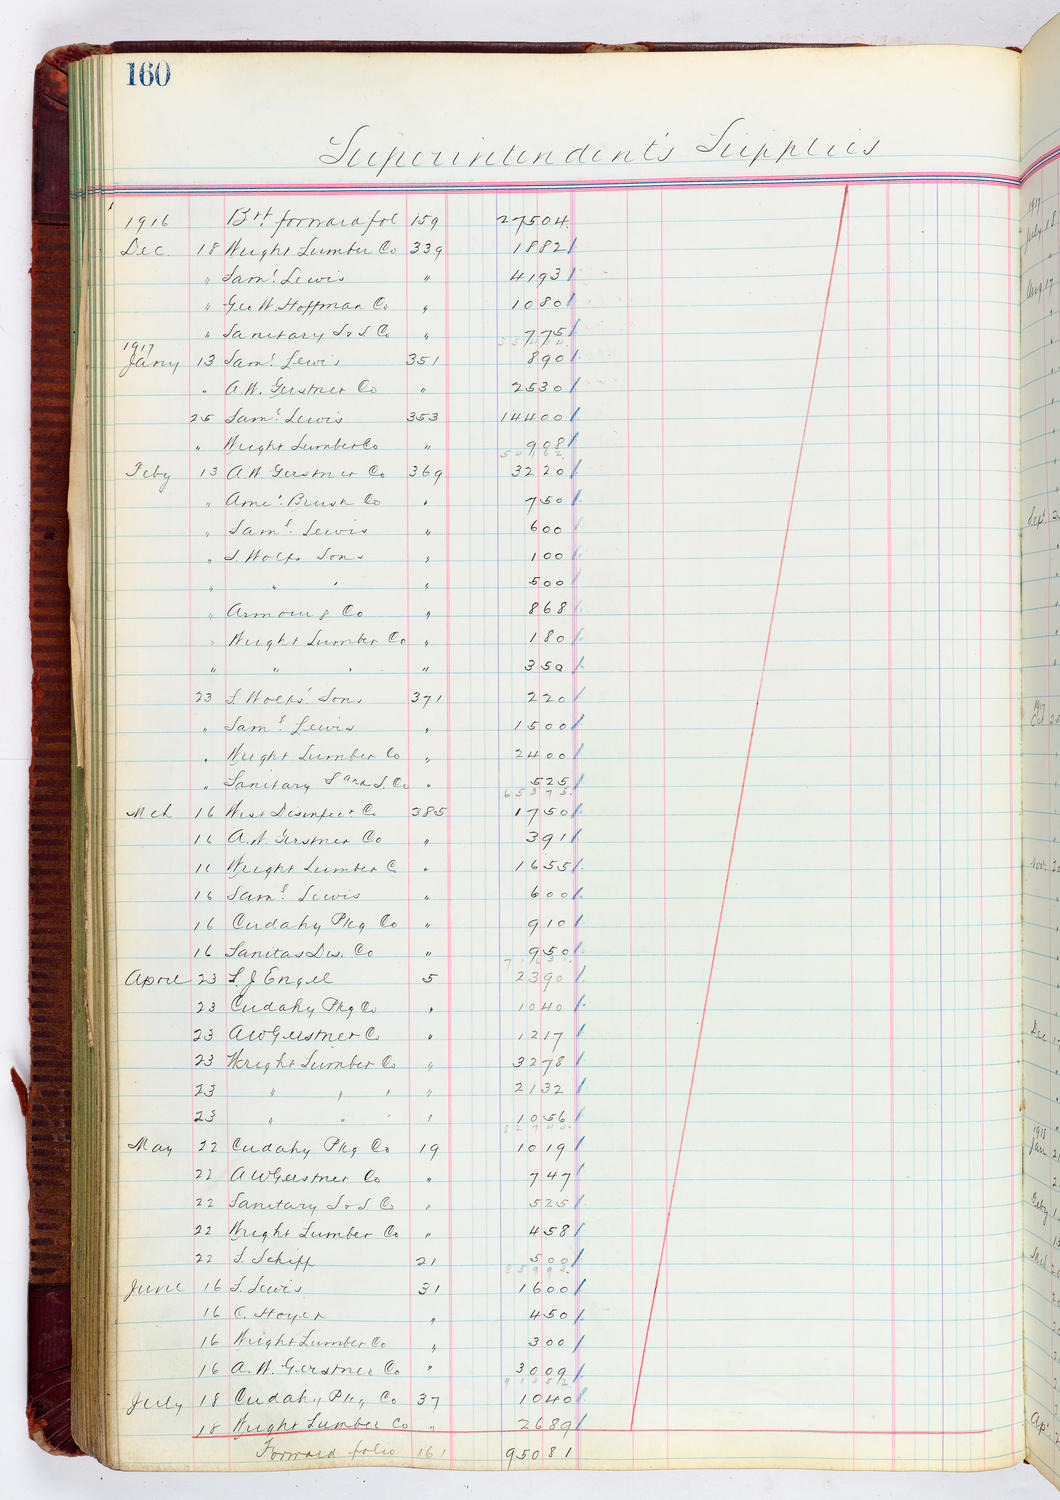 160
Superintendent's Supplies
1916 Brt forward fol 159 27504
Dec. 18 Wright Lumber Co 339 1882
" Saml Lewis " 4193
" Geo W. Hoffman Co " 1080
" Sanitary S & S Co " 775
1917
Jany 13 Saml Lewis 351 890
" A.W. Gerstner Co " 2530
25 Saml Lewis 353 14400
" Wright Lumber Co " 908
54162
Feby 13 A.W. Gerstner Co 369 3220
" Amer. Brush Co " 750
" Saml Lewis " 600
" S. Wolfs Sons " 100
" " " " 500
" Armour & Co " 868
" Wright Lumber Co " 180
" " " " 350
23 S. Wolfs' Sons 371 220
" Saml Lewis " 1500
" Wright Lumber Co " 2400
" Sanitary S and S. Co " 525
65375
Mch 16 West Disinfect Co 385 1750
16 A.W. Gerstner Co " 391
16 Wright Lumber C " 1655
16 Saml Lewis " 600
16 Cudahy Pkg Co " 910
16 Sanitas Dis. Co " 950
April 23 S. J Engel 5 2390
23 Cudahy Pkg Co " 1040
23 A W Gerstner Co " 1217
23 Wright Lumber Co " 3278
23 " " " " 2132
23 " " " " 1056
82745
May 22 Cudahy Pkg Co 19 1019
22 A W Gerstner Co " 747
22 Sanitary S & S. Co " 525
22 Wright Lumber Co " 458
22 S. Schiff 21 500
85993
June 16 S. Lewis 31 1600
16 C. Hoyer " 450
16 Wright Lumber Co " 300
16 A. W. Gerstner Co " 3009
91352
July 18 Cudahy Pkg Co 37 1040
18 Wright Lumber Co " 2689
Forward folio 161 95081